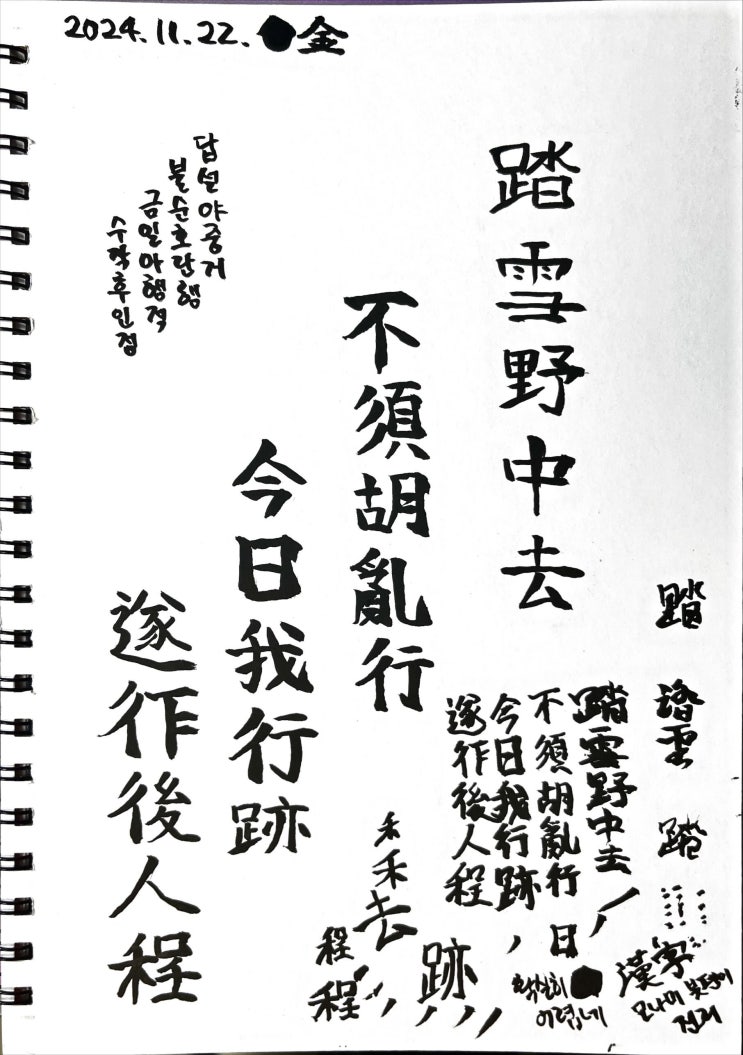 2024.11.22. 金
踏雪野中去
不須胡亂行
今日我行跡
遂作後人程
답설야중거
불순호란행
금일아행적
수작후인정
踏
踏雪野中去
不須胡亂行
今日我行跡
遂作後人程
禾
禾
去
程
程
跡
日
漢字
확실히
어렵네
모나미 붓펜이